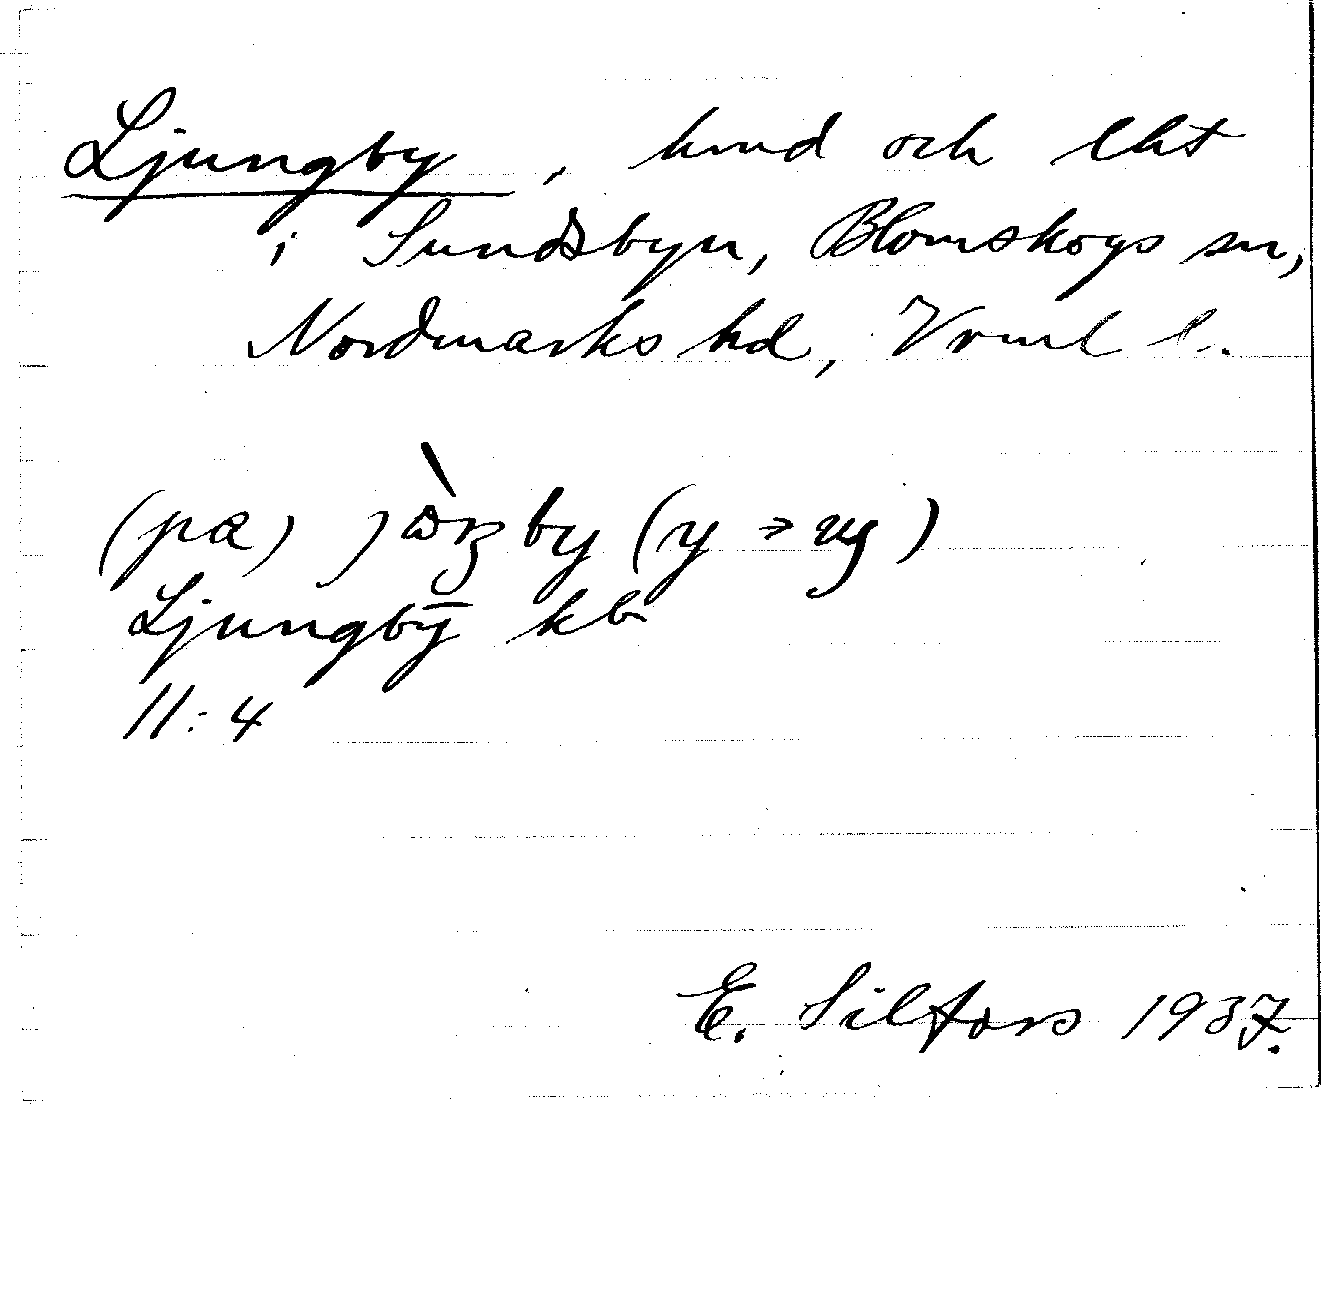 Ljungby, hmd och lht
i Sundsbyn, Blomskogs sn,
Nordmarks hd, Vrml l.
(pa) jɷ̀ŋby (y → yg)
Ljungbȳ kb
11:4
E. Silfors 1937.